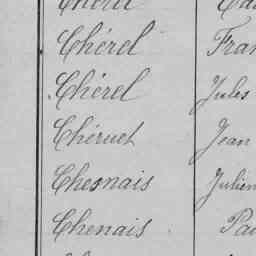 Chérel Fran
Chérel Jules
Chéruet Jean
Chesnais Julien
Chenais Pa